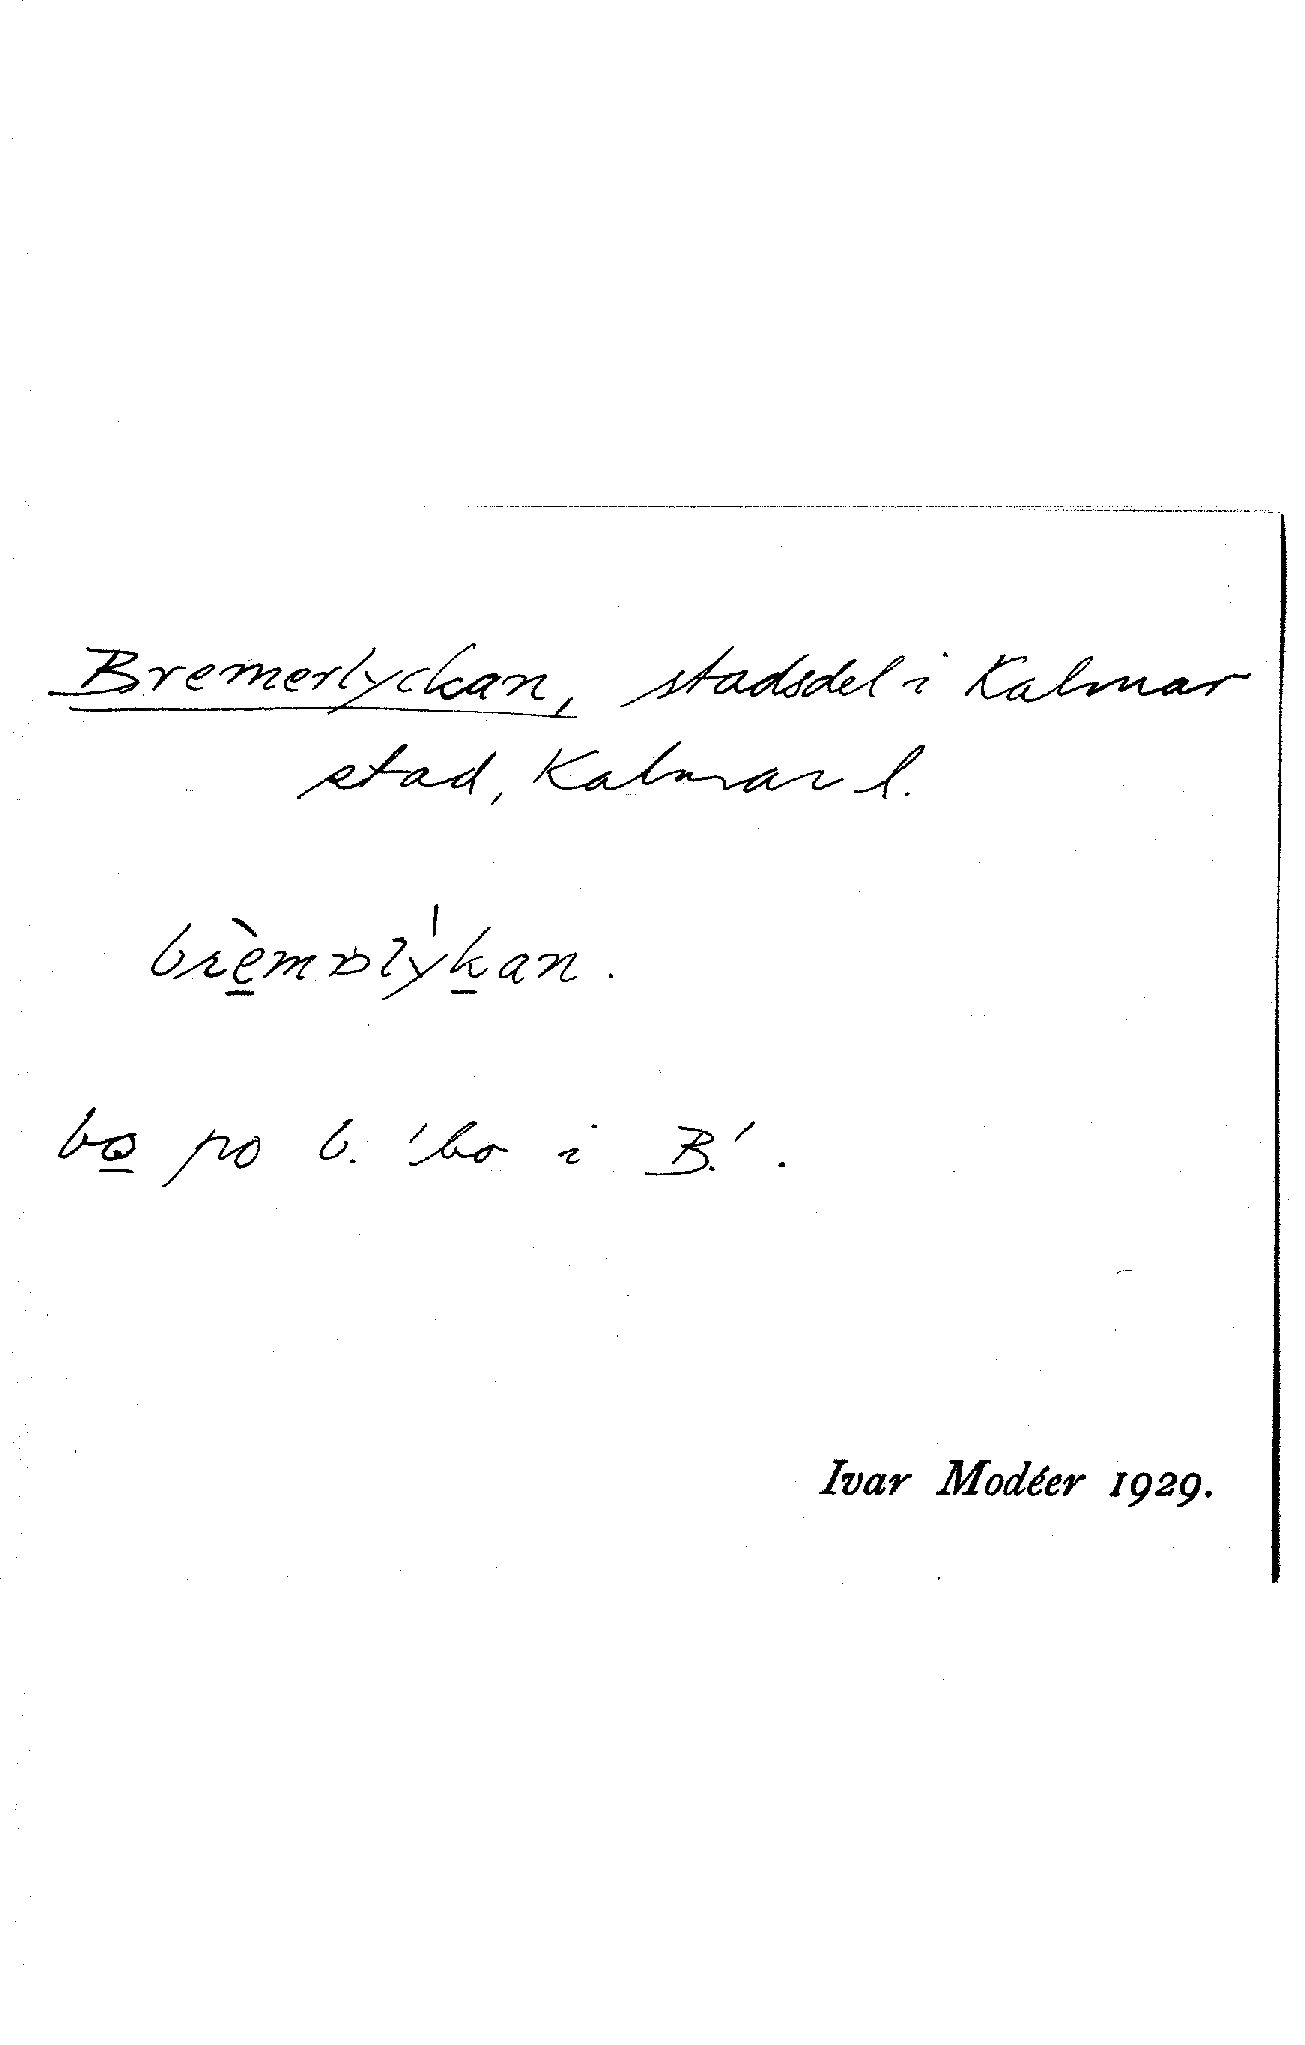 Bremerlyckan, stadsdel i Kalmar
stad, Kalmar l.
brèmɒlýkan.
bo po b. 'bo i B.'.
Ivar Modéer 1929.